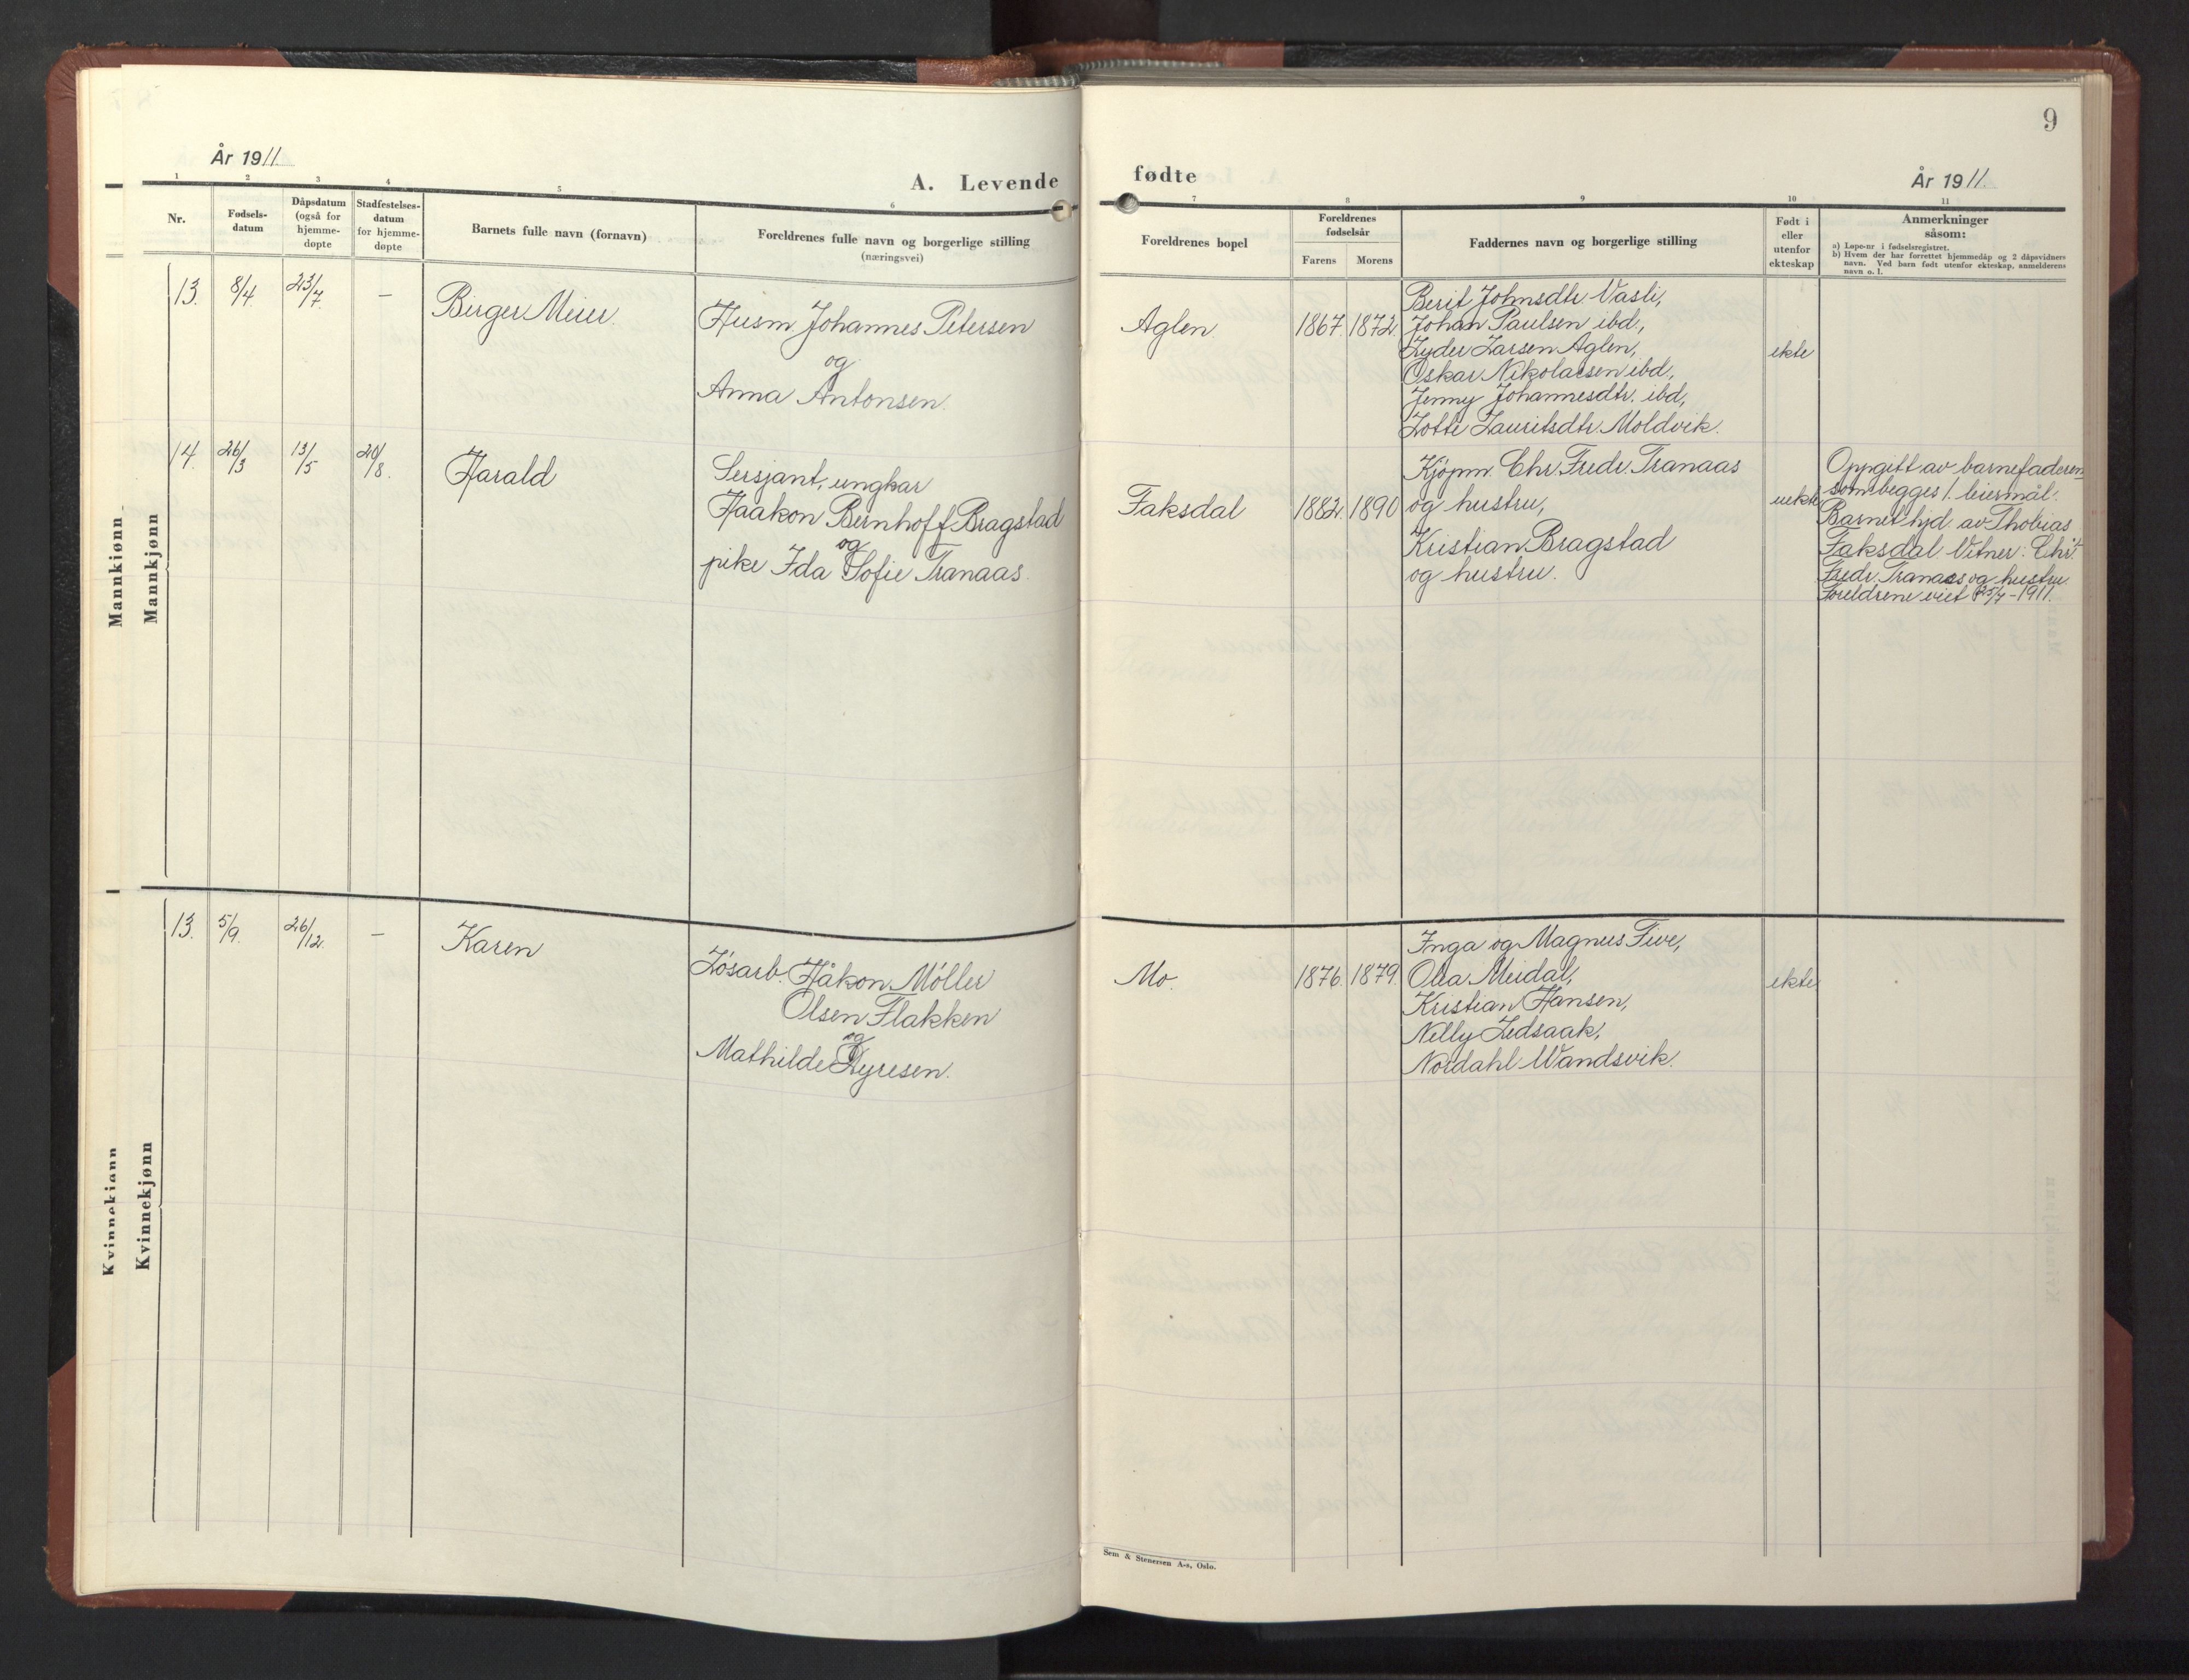 9
År 1911
A. Levende
fødte
År 1911.
1 2 3 4 5 6
7 8 9 10 11
Nr.
Fødsels-
datum
Dåpsdatum
(også for
hjemme-
døpte
Stadfestelses-
datum
for hjemme-
døpte
Barnets fulle navn (fornavn)
Foreldrenes fulle navn og borgerlige stilling
(næringsvei)
Foreldrenes bopel
Foreldrenes
fødselsår
Farens Morens
Faddernes navn og borgerlige stilling
Født i
eller
utenfor
ekteskap
Anmerkninger
såsom:
a) Løpe-nr i fødselsregistret.
b) Hvem der har forrettet hjemmedåp og 2 dåpsvidners
navn. Ved barn født utenfor ekteskap, anmelderens
navn o. l.
Mannkjønn
Mannkjønn
13. 8/4. 23/7. —
Birger Meier.
Husm. Johannes Petersen
og
Anna Antonsen.
Aglen.
1867. 1872.
Berit Johnsdtr. Vasli,
Johan Paulsen ibd.,
Lyder Larsen Aglen,
Oskar Nikolaisen ibd.,
Jenny Johannesdtr. ibd,
Lotte Lauritsdtr. Moldvik.
ekte
14. 26/3 13/5 20/8.
Harald
Sersjant, ungkar
Haakon Bernhoff Bragstad
og
pike Ida Sofie Tranaas.
Faksdal
1882. 1890
Kjøpm. Chr. Fredr. Tranaas
og hustru,
Kristian Bragstad
og hustru.
uekte
Oppgitt av barnefaderen
som begges 1. leiermål.
Barnet hjd. av Thobias
Faksdal. Vitner: Chr.
Fredr. Tranaas og hustru.
Foreldrene viet 25/7-1911.
Kvinnekjønn
Kvinnekjønn
13. 5/9. 26/12. —
Karen
Løsarb. Håkon Møller
Olsen Flakken
og
Mathilde Kyresen.
Mo.
1876. 1879.
Inga og Magnus Five,
Olea Meidal,
Kristian Hansen,
Nelly Ledsaak,
Nordahl Wandsvik.
ekte
Sem & Stenersen A-s, Oslo.